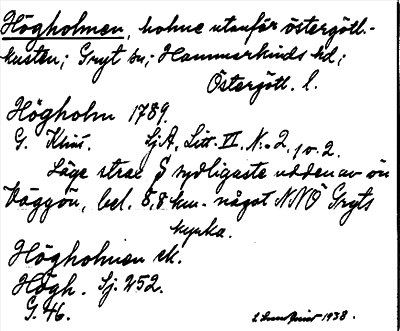 Högholmen, holme utanför östergötl.-
kusten; Gryt sn; Hammarkinds hd;
Östergötl. l.
Högholm 1789.
G. Klint. Sj.A, Litt. VI, No. 2, 1 o. 2.
Läge strax S sydligaste udden av ön
Väggön, bel. 5,8 km. något NNO Gryts
kyrka.
Högholmen ek.
Högh. Sj. 252.
G. 46.
1938.